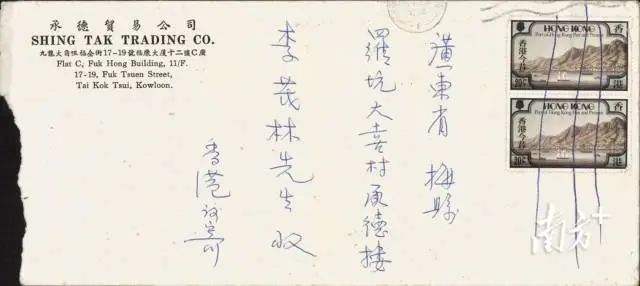 承德貿易公司
SHING TAK TRADING CO.
九龍大角咀福全街17-19號福康大厦十二樓C座
Flat C, Fuk Hong Building, 11/F.
17-19, Fuk Tsuen Street,
Tai Kok Tsui, Kowloon.
廣東省 梅縣
羅坑大莑村承德楼
李茂林先生收
香港 寄
HONG KONG
Port of Hong Kong Past and Present
香港今昔
20c
港
HONG KONG
Port of Hong Kong Past and Present
香港今昔
港
南方+